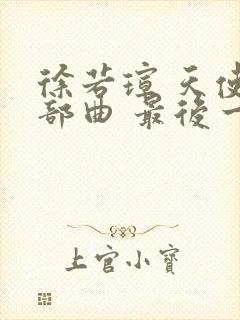 徐若瑄 天使
部曲 最後一
上官小寶